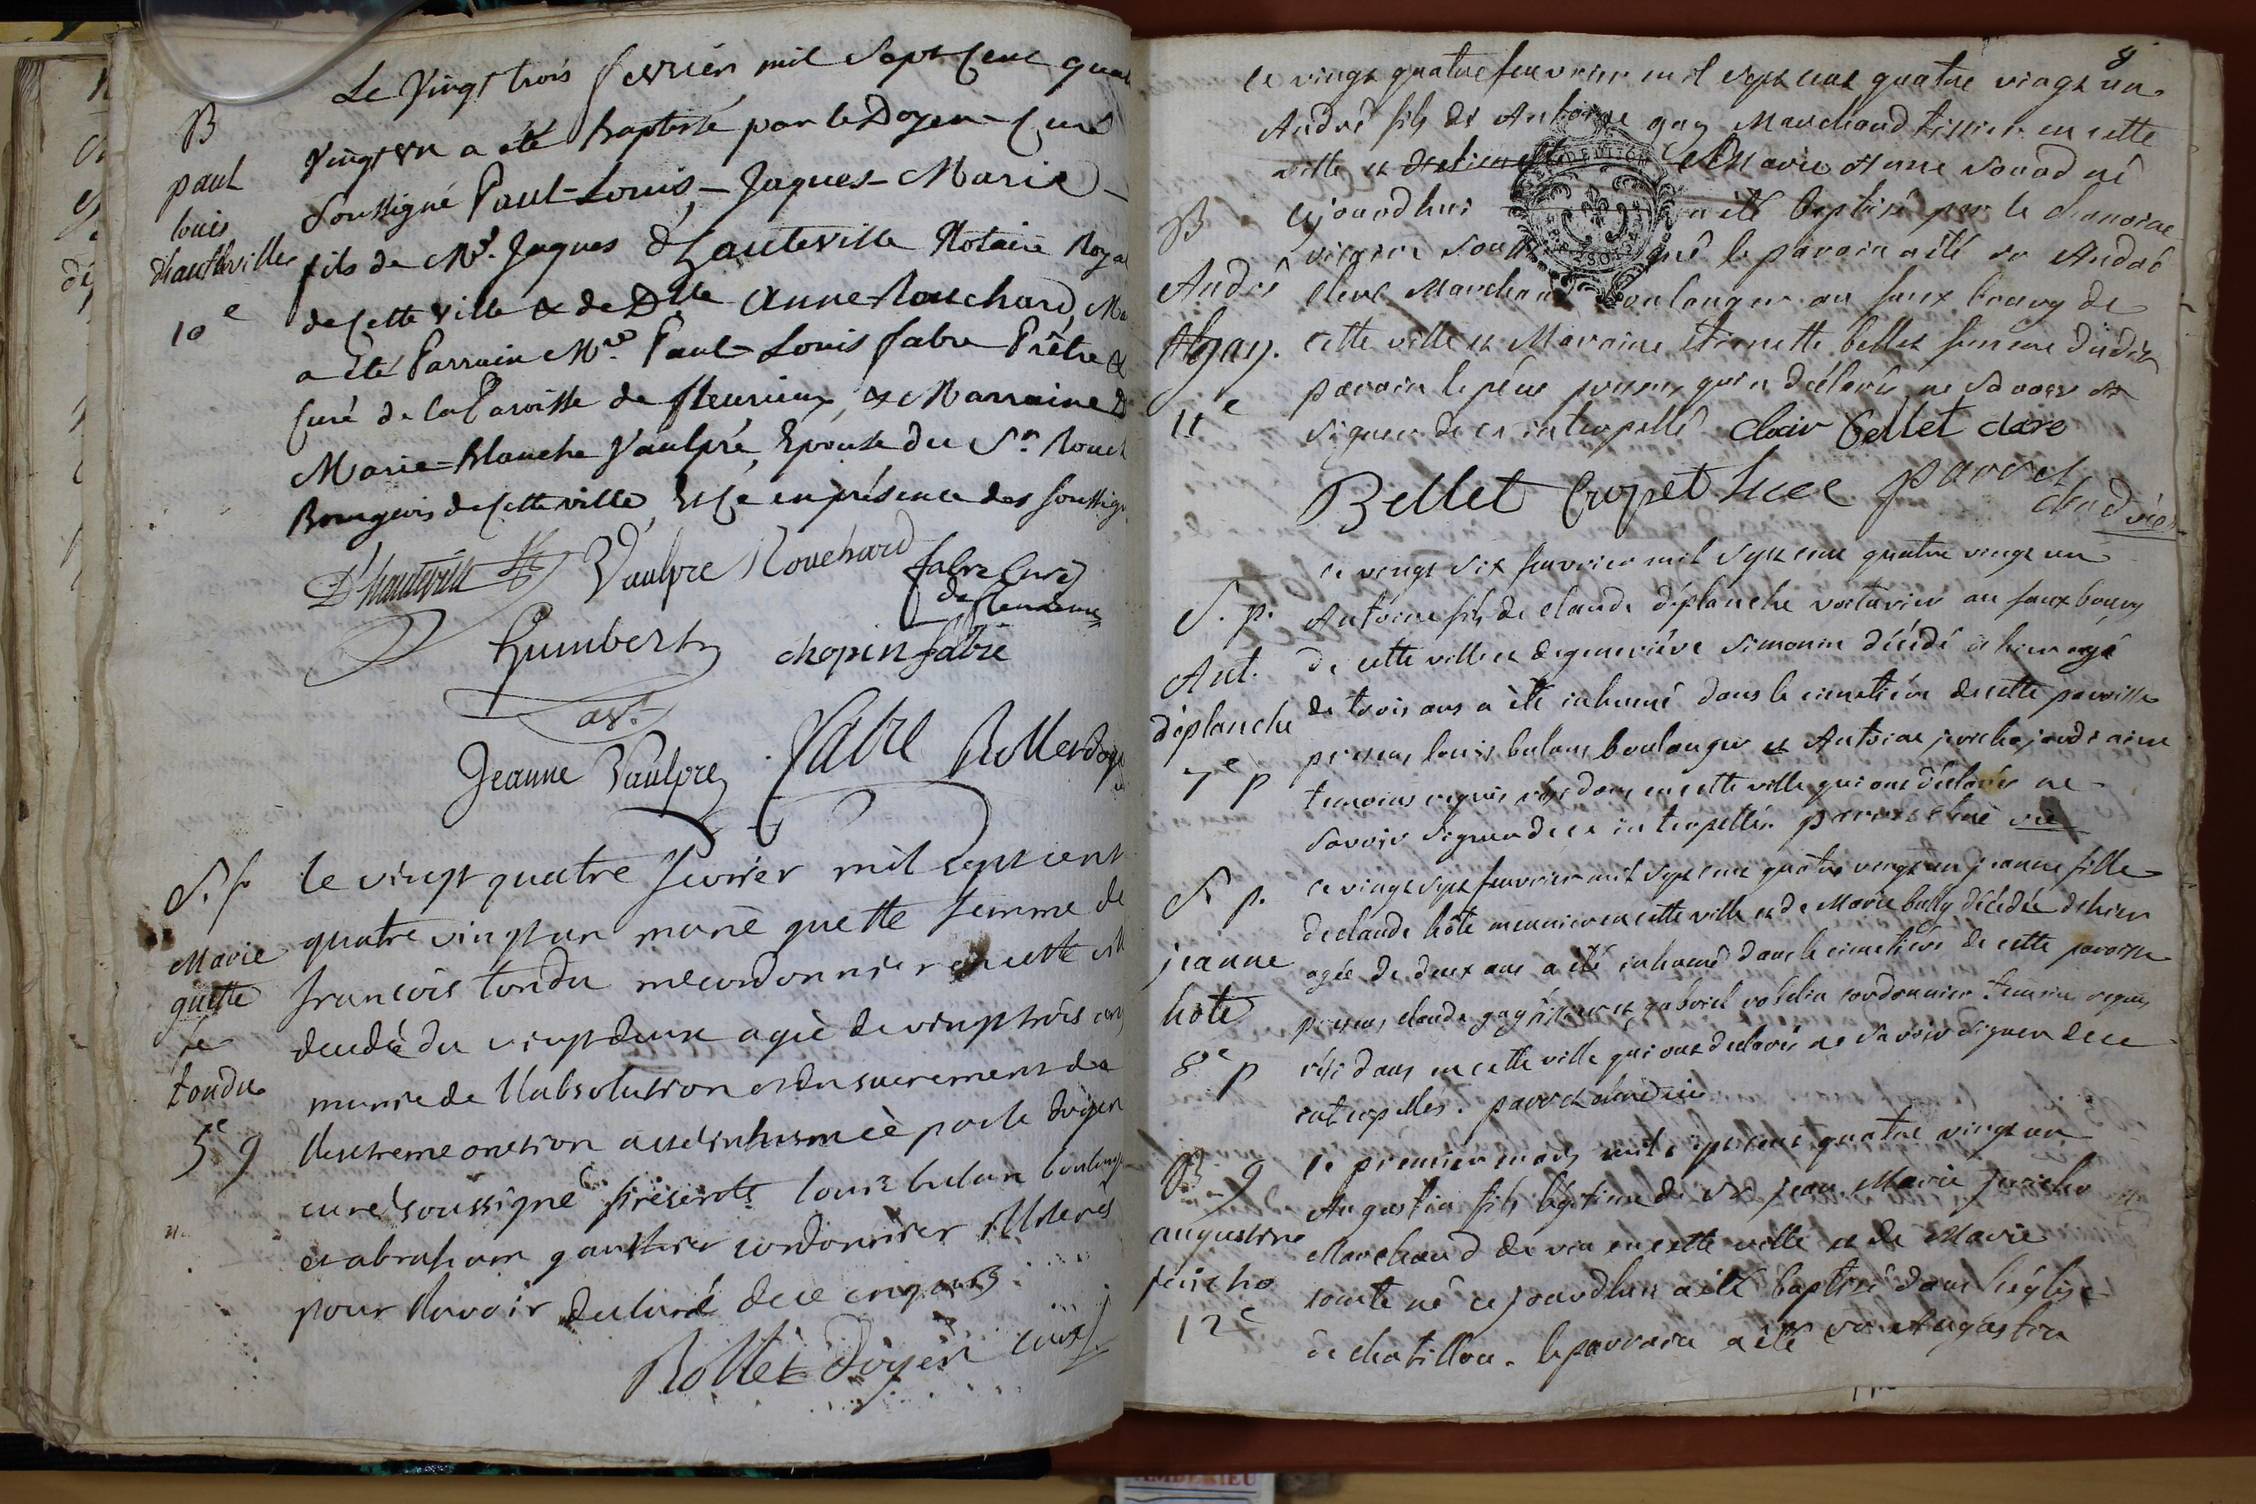 B
paul
louis
d'hautteville
10e
Le Vingt trois fevrier mil Sept Cent quat
Vingt un a été baptisé par le Doyen Curé
Soussigné Paul-Louis-Jaques-Marie
fils de Mr. Jaques d'hauteville Notaire Royal
de Cette ville & de Dlle Anne Rouchard, Mr
a été Parrain Mre. Paul-Louis fabre Prêtre &
Curé de la Paroisse de fleurieux, & Marraine D
Marie-Blanche Vaulpré, Epouse du Sr. Rouch
Bourgeois de Cette ville, Et Ce en présence des soussign
D'hauteville Vaulpre Rouchard fabre Curé
de fleurieux
humbert chopin fabre
av.t
Jeanne Vaulpre fabre Rollet doye
S. p
Marie
guette
fe
tondu
5e g
le vingt quatre fevrier mil sept cent
quatre vingt un marie guette femme de
francois tondu me cordonnier en cette vill
decedée du vingt deux agée de vingt trois ans
munie de l'absolution et du sacrement de
l'extreme onction a ete inhumée par le doyen
curé soussigné presents louis bulan boulang
et abraham gauthier cordonnier illiteres
pour l'avoir declaré de ce enquis
Rollet Doyen curé
8
le vingt quatre feuvrier mil sept cent quatre vingt un
André fils de Antoine gay Marchand tissier en cette
ville et de Marie Anne né
cejourdhui a été baptisé par le chanoine
vicaire le parain a été sr André
clere Marchand boulanger au faux bourg de
cette ville et Maraine bellet femme dudit
parain le père present qui a déclaré ne savoir
signer de ce interpellé clair Bellet clere
Bellet Crozet parret
chan vic
B
André
gay.
11e
S. p.
Ant.
déplanche
7e p
le vingt six feuvrier mil sept cent quatre vingt un
Antoine fils de claude déplanche voiturier au faux bourg
de cette ville et de geneviève Simonin décédé d'hier agé
de trois ans a été inhumé dans le cimetière de cette paroisse
presens louis bulan boulanger et Antoine
temoins requis résidans en cette ville qui ont déclarés ne
savoir signer de ce interpellés parret chne vic
S. p.
jeanne
hôte
8e p
le vingt sept feuvrier mil sept cent quatre vingt un jeanne fille
de claude hôte meunier en cette ville et de Marie bully décédée d'hier
agée de deux ans a été inhumé dans le cimetière de cette paroisse
presens claude gay tissier et gabriel cordonnier temoins requis
résidans en cette ville qui ont declarés ne savoir signer de ce
interpellés. parret chne vic
B. g
augustine
jericho
12e
le premier mars mil sept cent quatre vingt un
Augustin fils légitime de Sr jean Marie jericho
Marchand de vin en cette ville et de Marie
comte né ce jourdhui a été baptisé dans l'église
de chatillon. le parrain a été sr Augustin